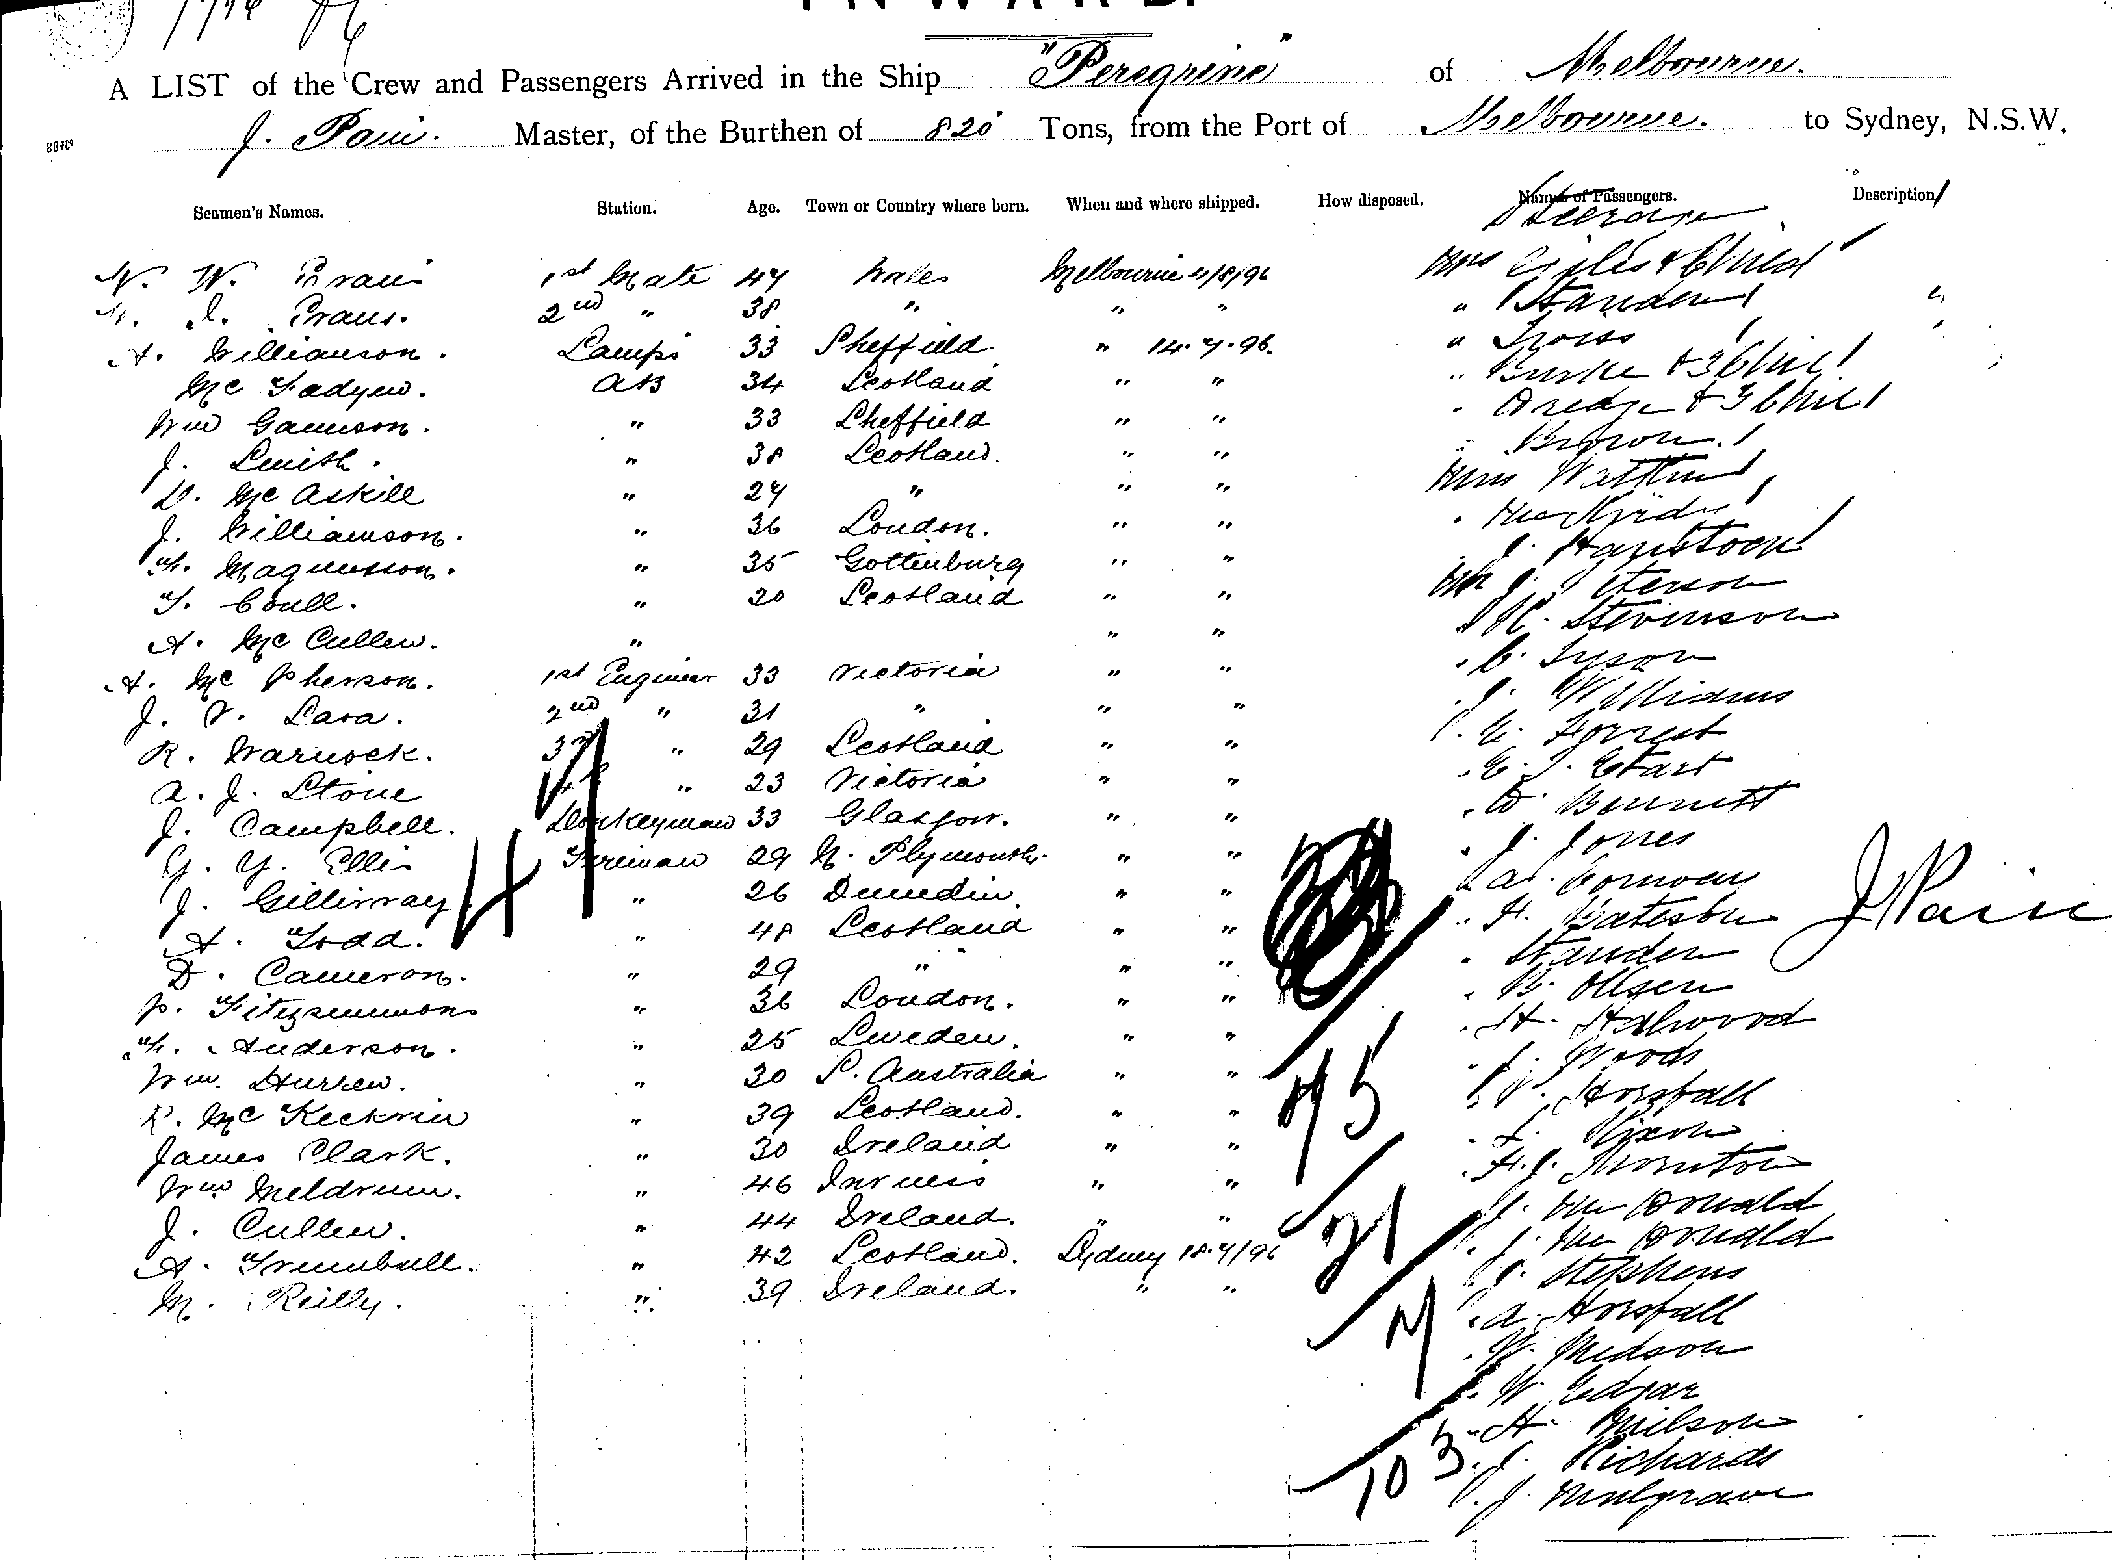 INWARD.
A LIST of the Crew and Passengers Arrived in the Ship "Peregrine" of Melbourne.
J. Pain. Master, of the Burthen of 820 Tons, from the Port of Melbourne. to Sydney, N.S.W.
Seamen's Names. Station. Age. Town or Country where born. When and where shipped. How disposed. Names of Passengers. Description
Steerage
W. W. Evans 1st Mate 47 Wales Melbourne Mrs Giles & Child
Evans. 2nd " 38 " " " " Standen "
A. Williamson. Lamps 33 Sheffield " 14.7.96. "
Mc Fadyen. AB 34 Scotland " " " Burke & 3 Chil
Wm Gamson. " 33 Sheffield " " & 3 Chil
J. Smith. " 38 Scotland. " " Brown.
D. Mc Askill " 27 " " " Miss
J. Williamson. " 36 London. " "
Magnusson. " 35 Gottenburg " " J.
T. Coull. " 20 Scotland " " Mr J. Peterson
A. Mc Cullen. " " " H. Stevenson
A. Mc Pherson. 1st Engineer 33 Victoria " " C. Tyson
J. V. Lava. 2nd " 31 " " " J. Williams
R. Warnock. 3rd " 29 Scotland " " E. Forrest
A. J. Stone 4th " 23 Victoria " "
J. Campbell. Donkeyman 33 Glasgow. " " W. Bennett
G. Y. Ellis Fireman 29 N. Plymouth. " " J. Jones
J. Gillivray " 26 Dunedin. " " A.
A. Todd. " 48 Scotland " " H. J Pain
D. Cameron. " 29 " " " Standen
P. Fitzsimmons " 36 London. " " B. Olsen
Anderson. " 25 Sweden. " " H.
Wm. Hurren. " 30 S. Australia " " J. Woods
R. Mc Kecknie " 39 Scotland. " " Horsfall
James Clark. " 30 Ireland " " Nixon
Wm Meldrum. " 46 Inverness " " H. J. Thornton
J. Cullen. " 44 Ireland. " " J. Mc Donald
A. Trumbull. " 42 Scotland. Sydney 18.7/96 J. Mc Donald
M. Reilly. " 39 Ireland. " " J. Stephens
A. Horsfall
W. Medson
W. Edgar
H. Milson
J. Richards
J. Mulgrave
41
75
21
7
103